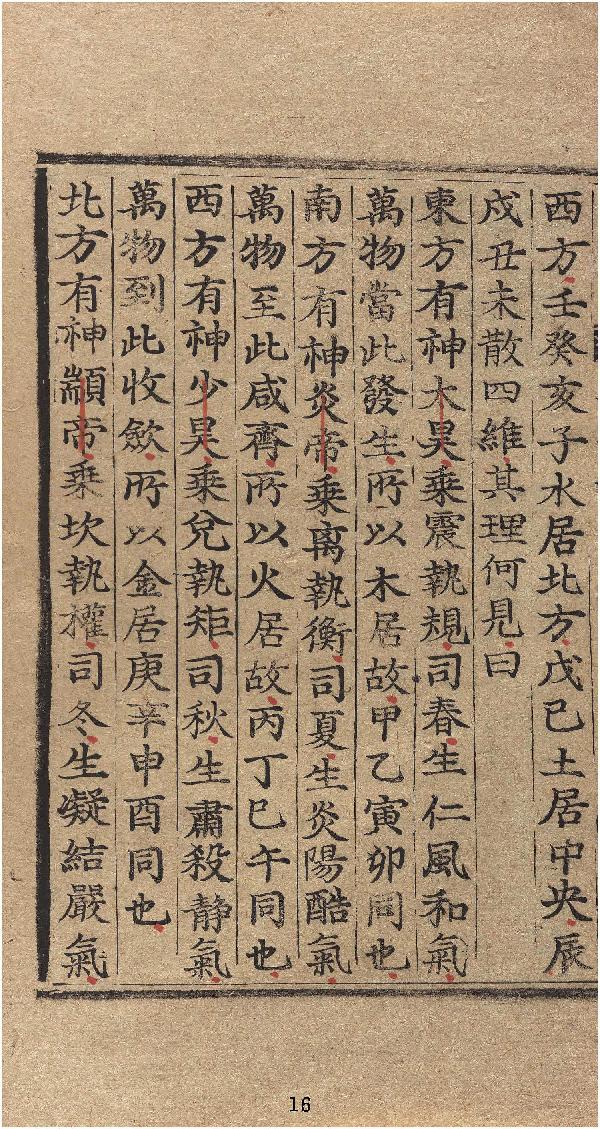 西方壬癸亥子水居北方戊己土居中央辰
戍丑未散四維其理何見曰
東方有神太昊乗震執規司春生仁風和氣
萬物當此發生所以木居故甲乙寅卯同也
南方有神炎帝乗离執衡司夏生炎陽酷氣
萬物至此咸齊所以火居故丙丁巳午同也
西方有神少昊乗兊執矩司秋生肅殺静氣
萬物到此收歛所以金居庚辛申酉同也
北方有神顓帝乗坎執權司冬生凝結嚴氣
16